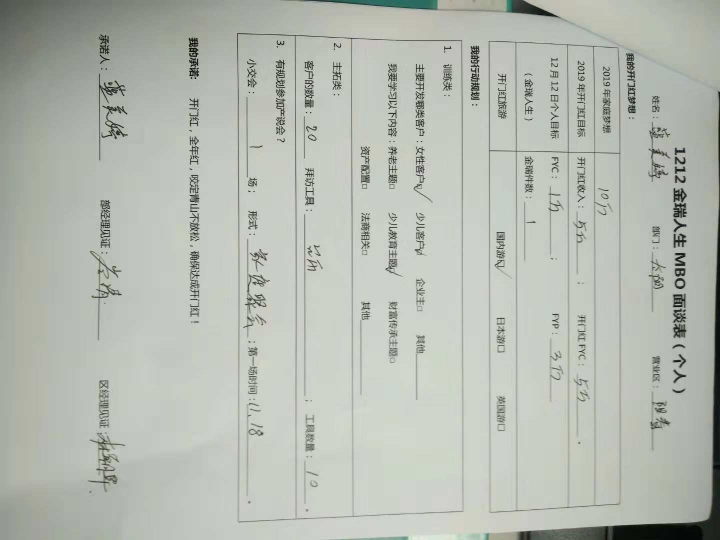 1212 金瑞人生 MBO 面谈表（个人）
姓名： 部门：太阳 营业区：
我的开门红梦想：
2019 年家庭梦想 10万
2019 年开门红目标 开门红收入：5万； 开门红 FYC：5万。
12 月 12 日个人目标 FYC：1万； FYP：3万
（金瑞人生） 金瑞件数：1
开门红旅游 国内游☑ 日本游□ 英国游□
我的行动规划：
1. 训练类：
主要开发哪类客户：女性客户☑ 少儿客户☑ 企业主□ 其他
我要学习以下内容：养老主题□ 少儿教育主题☑ 财富传承主题□
资产配置□ 法商相关□ 其他
2. 主拓类：
客户的数量：20 拜访工具：； 工具数量：10。
3. 有规划参加产说会？
小交会：1场； 形式：；第一场时间：11、18。
我的承诺： 开门红，全年红，咬定青山不放松，确保达成开门红！
承诺人： 部经理见证： 区经理见证：